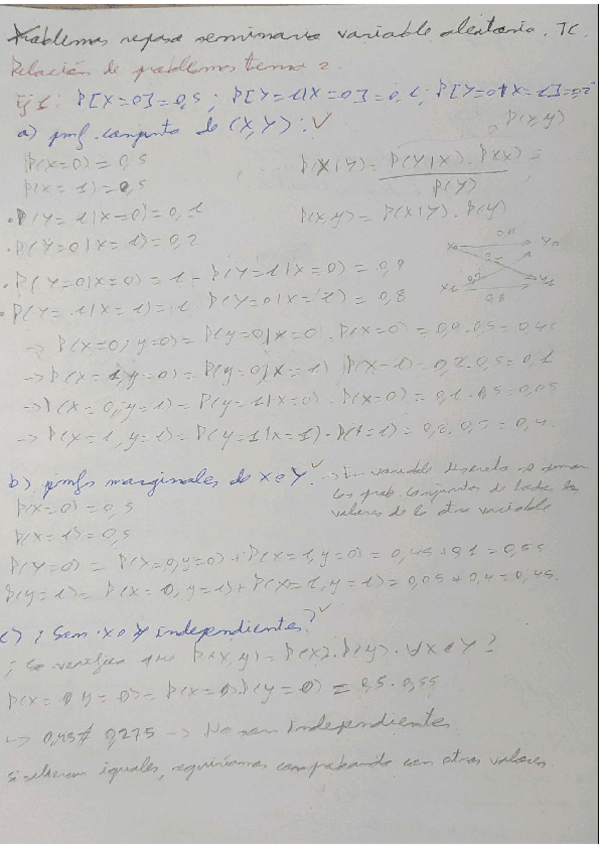 Problemas repaso seminario variable aleatoria. TC.
Relación de problemas tema 2.
Ej 1: P[X=0]=0,5; P[Y=1|X=0]=0,1; P[Y=0|X=1]=0,2
a) pmf conjunta de (X,Y): ✓ P(x,y)
P(X=0)=0,5
P(X=1)=0,5
P(X|Y)=P(Y|X).P(X)/P(Y)=
• P(Y=1|X=0)=0,1
P(X,Y)=P(X|Y).P(Y)
• P(Y=0|X=1)=0,2
• P(Y=0|X=0)=1-P(Y=1|X=0)=0,9
• P(Y=1|X=1)=1-P(Y=0|X=1)=0,8
X0 Y0
X1 Y1
0,8
→ P(X=0,y=0)=P(y=0|x=0).P(X=0)=0,9.0,5=0,45
→ P(X=1,y=0)=P(y=0|x=1) P(X=1)=0,2.0,5=0,1
→ P(X=0,y=1)=P(y=1|x=0).P(X=0)=0,1.0,5=0,05
→ P(X=1,y=1)=P(y=1|x=1).P(X=1)=0,8.0,5=0,4.
b) pmfs marginales de X e Y. ✓ → En variable discreta se suman
las prob. conjuntas de todos los
valores de la otra variable
P(X=0)=0,5
P(X=1)=0,5
P(Y=0)=P(X=0,y=0)+P(X=1,y=0)=0,45+0,1=0,55
P(y=1)=P(X=0,y=1)+P(X=1,y=1)=0,05+0,4=0,45.
c) ¿Son X e Y independientes? ✓
¿Se verifica que P(X,y)=P(X).P(y). ∀X e Y?
P(X=0 y=0)=P(X=0)P(y=0)=0,5.0,55
↳ 0,45≠0,275 → No son independientes
Si salieran iguales, seguiríamos comprobando con otros valores.